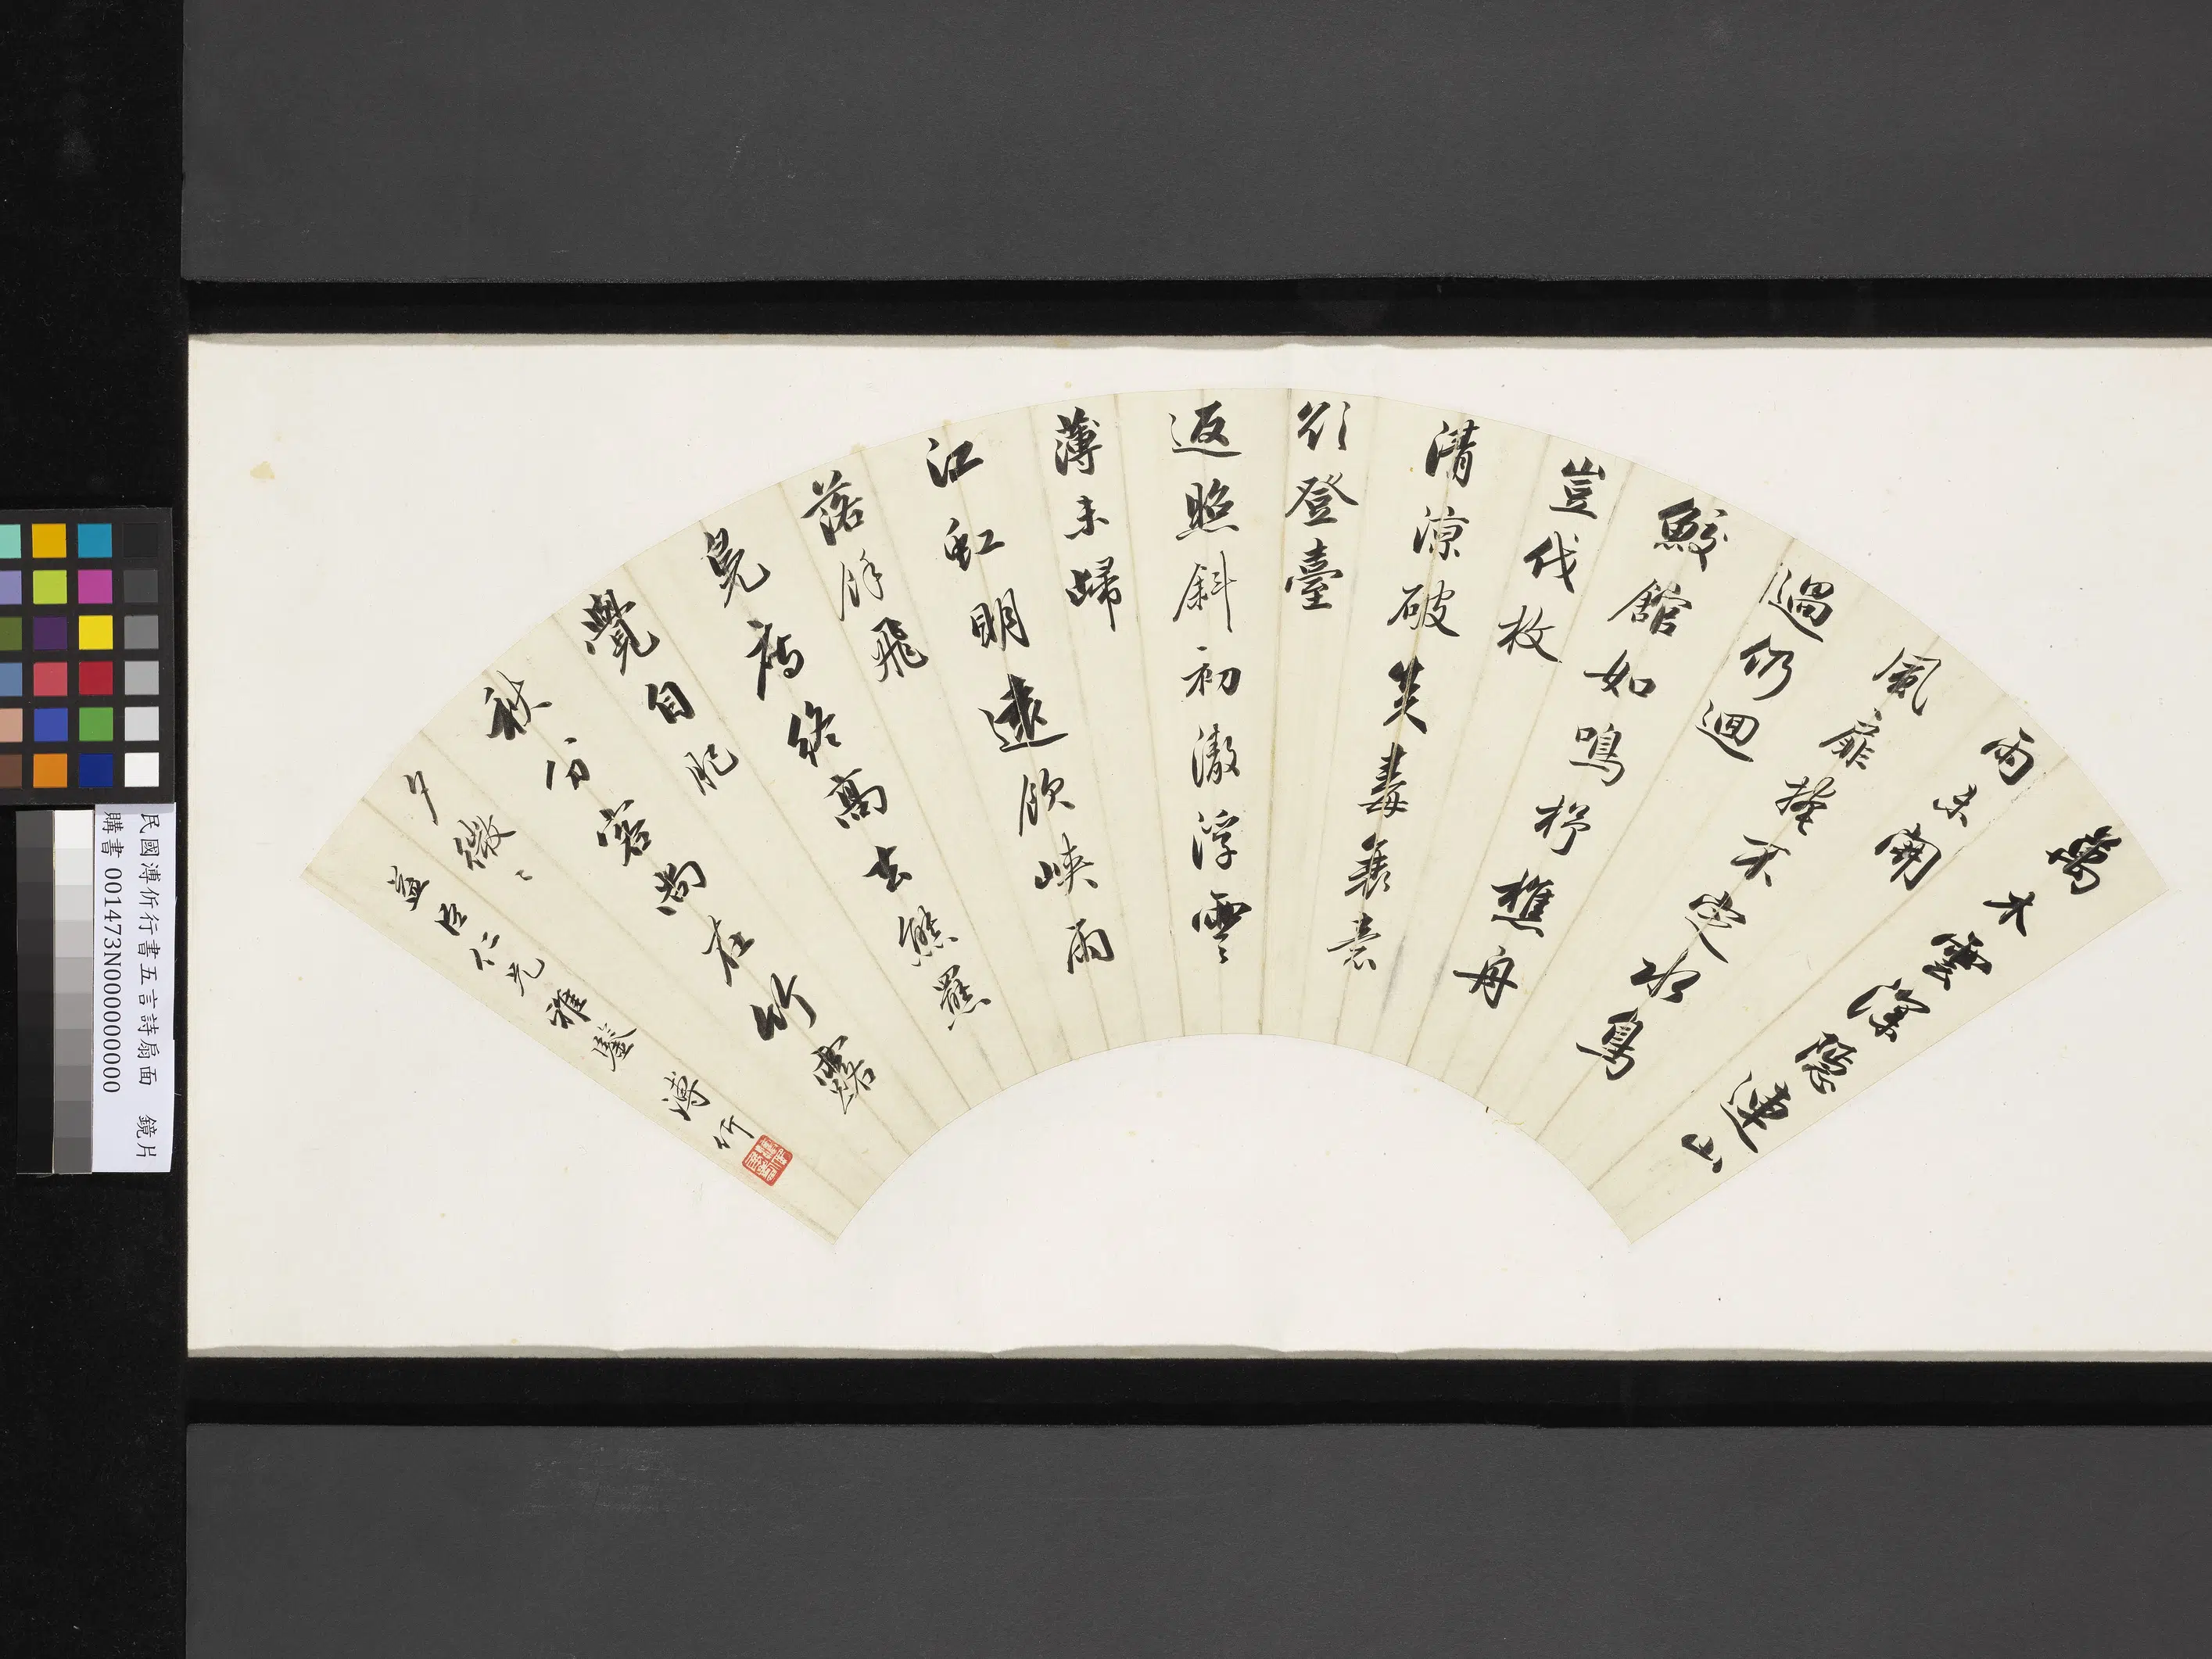 萬木雲深隱連山
雨未開
風扉掩不定水鳥
過仍迴
鮫館如鳴杼樵舟
豈伐枚
清涼破炎毒衰意
欲登臺
返照斜初澈浮雲
薄未歸
江虹明遠飲峽雨
落餘飛
鳧鴈終高去熊羆
覺自肥
秋分客尚在竹露
夕微〻
臣仁兄雅鑒 溥伒
民國溥伒行書五言詩扇面 鏡片
購書 001473N000000000